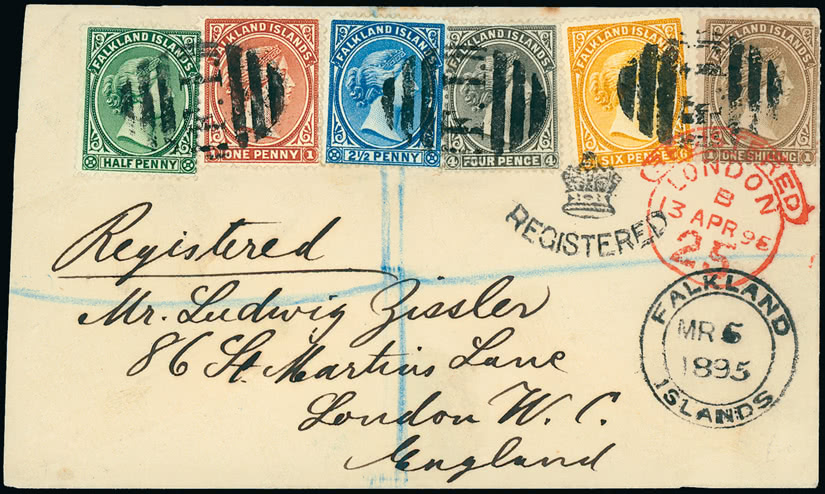 FALKLAND ISLANDS
HALF PENNY
FALKLAND ISLANDS
ONE PENNY 1
FALKLAND ISLANDS
2½ PENNY
FALKLAND ISLANDS
4 FOUR PENCE 4
FALKLAND ISLANDS
SIX PENCE 6
FALKLAND ISLANDS
1 ONE SHILLING 1
REGISTERED
REGISTERED
LONDON
B
13 APR 95
25
Registered
Mr. Ludwig Zissler
86 St. Martins Lane
London W. C.
England
FALKLAND
MR 6
1895
ISLANDS